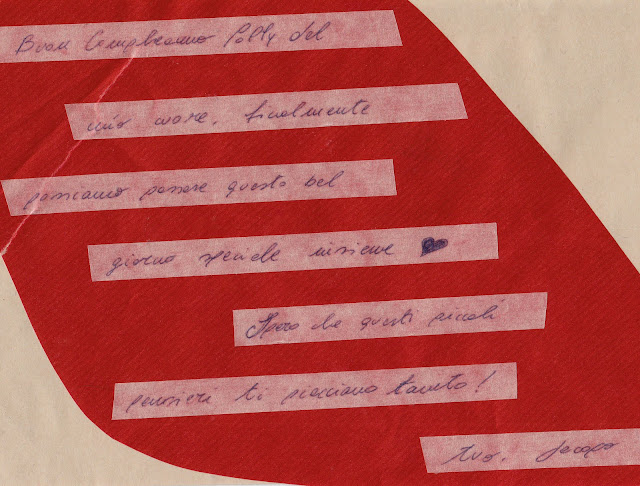 Buon Compleanno Polly del
mio cuore, finalmente
possiamo passare questo bel
giorno speciale insieme
Spero che questi piccoli
pensieri ti piacciano tanto!
tuo, Jacopo